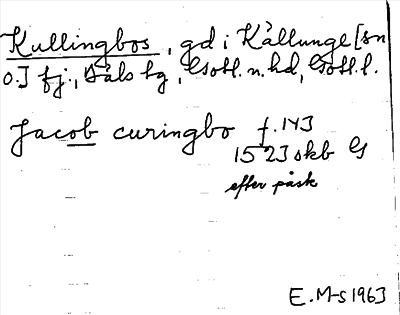 Kullingbos, gd i Källunge [sn
o.] fj., Bäls tg, Gotl. n. hd, Gotl. l.
Jacob curingbo f. 143
1523 skb G
efter påsk
E. M-s 1963